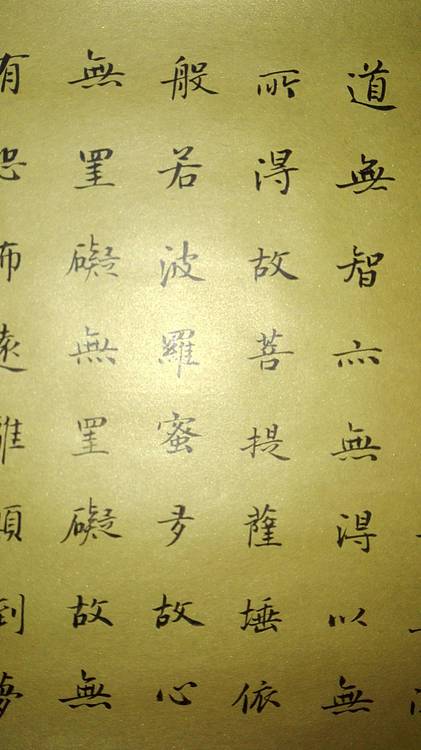 道無智亦無得以無
所得故菩提薩埵依
般若波羅蜜多故心
無罣礙無罣礙故無
有恐怖遠離顛倒夢